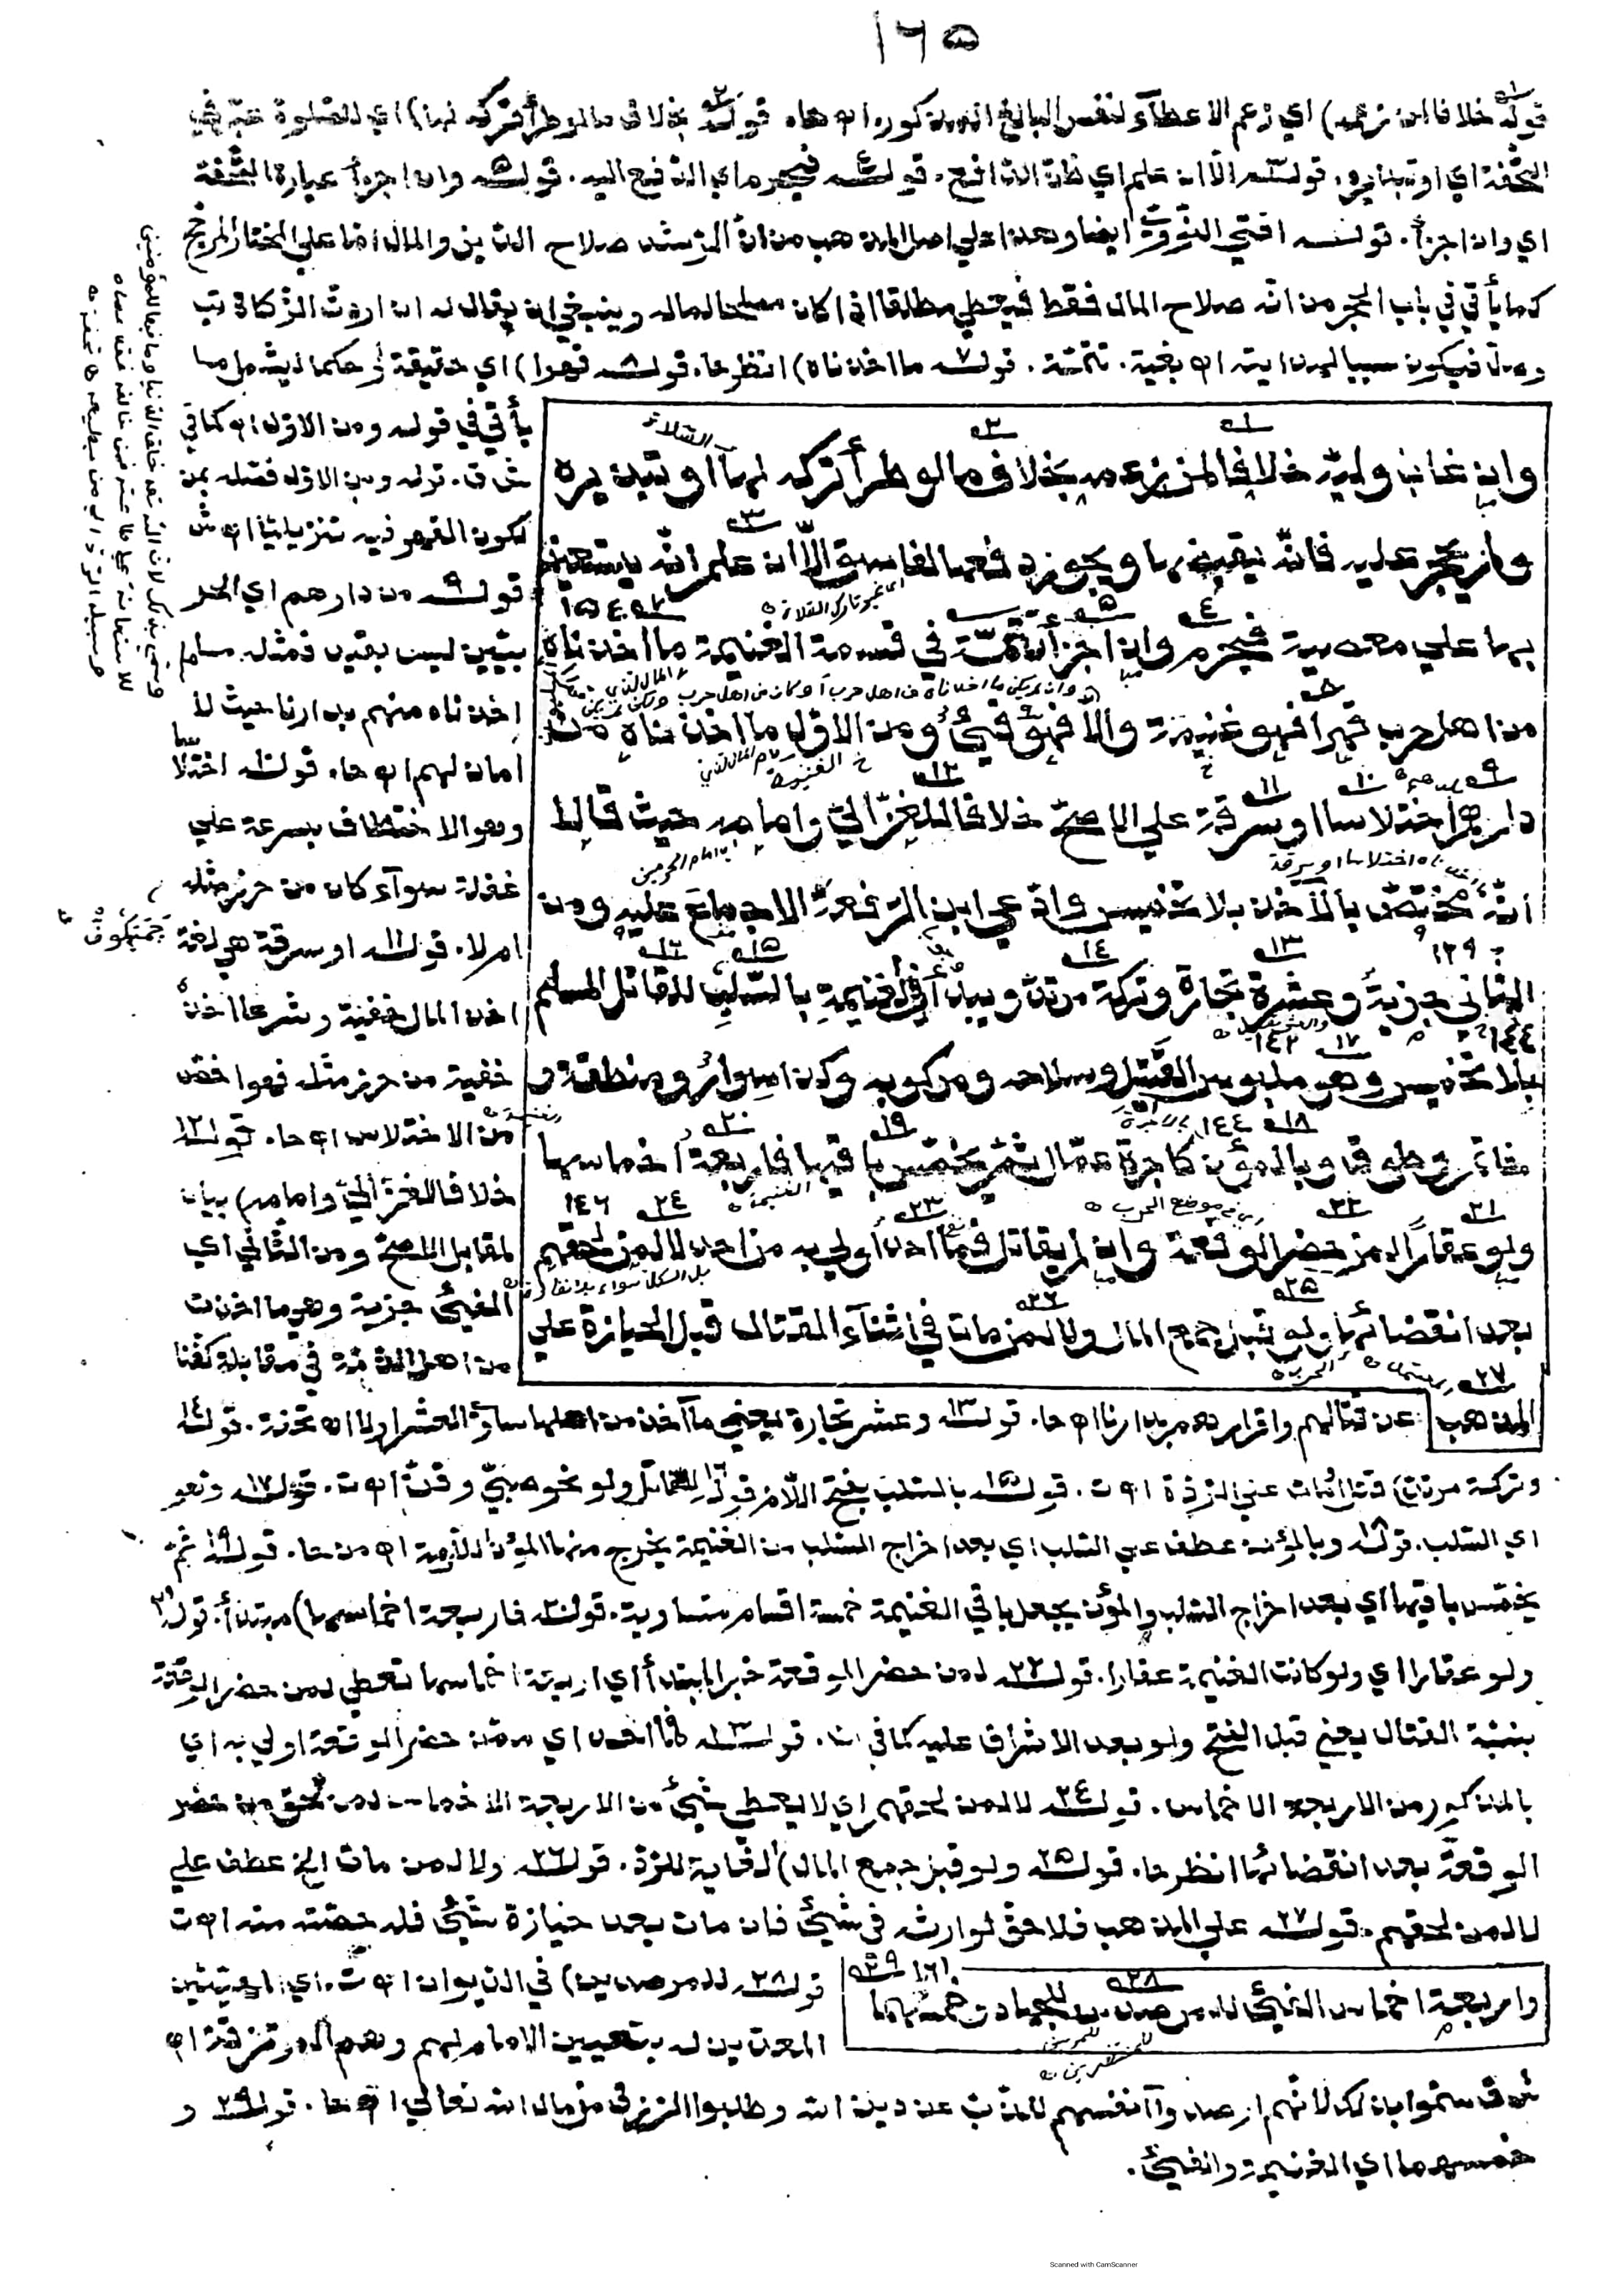 ١٦٥
قوله خلافا لمن زعمه) اي زعم الاعطاء لنفس البالغ المذكور اه حا. قوله بخلاف ما لو طرأ تركه لها) اي للصلوة عبر في
التحفة اي او تبذيره. قوله الا ان علم اي ظن الدافع. قوله فيحرم اي الدفع اليه. قوله وان اجزأ عبارة التحفة
اي وان اجزأ. قوله افتى النووي ايضا وهذا على اصل المذهب من ان الرشد صلاح الدين والمال اما على المختار المرجح
كما يأتي في باب الحجر من انه صلاح المال فقط فيعطي مطلقا اذا كان مصلحا لماله وينبغي ان يقال له ان اردت الزكاة تب
وصل فيكون سببا لهدايته اه بغية. تتمة. قوله ما اخذناه) انظر حا. قوله قهرا) اي حقيقة او حكما ليشمل ما
يأتي في قوله ومن الاول اه كما في
ش ق. قوله ومن الاول فصله بمن
لكون القهر فيه تنزيليا اه ش
قوله من دارهم اي الحر
بيين ليس بقيد فمثله
اخذناه منهم بدارنا حيث لا
امان لهم اه حا. قوله اختلا
وهو الاختطاف بسرعة على
غفلة سواء كان من حرز مثله
ام لا. قوله او سرقة هي لغة
اخذ المال خفية وشرعا اخذه
خفية من حرز مثله فهو اخص
من الاختلاس اه حا. قوله
خلافا للغزالي وامامه) بيان
لمقابل الاصح ومن الثاني اي
الفيئ جزية وهي ما اخذت
من اهل الذمة في مقابلة كفنا
وان غاب وليه خلافا لمن زعمه بخلاف ما لو طرأ تركه لها او تبذيره
ولم يحجر عليه فانه يقبضها ويجوز دفعها لفاسق الا ان علم انه يستعين
بها على معصية فيحرم وان اجزأ تتمة في قسمة الغنيمة ما اخذناه
من اهل حرب قهرا فهو غنيمة والا فهو فيئ ومن الاول ما اخذناه من
دارهم اختلاسا او سرقة على الاصح خلافا للغزالي وامامه حيث قالا
انه مختص بالآخذ بلا تخميس وادعى ابن الرفعة الاجماع عليه ومن
الثاني جزية وعشر تجارة وتركة مرتد ويبدأ في الغنيمة بالسلب للقاتل المسلم
بلا تخميس وهو ملبوس القتيل وسلاحه ومركوبه وكذا سوار ومنطقة و
خاتم وطوق وبالمؤن كاجرة حمال ثم يخمس باقيها فاربعة اخماسها
ولو عقارا لمن حضر الوقعة وان لم يقاتل فما احد اولى به من احد لا لمن لحقهم
بعد انقضائها ولو قبل جمع المال ولا لمن مات في اثناء القتال قبل الحيازة على
المذهب
عن قتالهم واقرارهم بدارنا اه حا. قوله وعشر تجارة يعني ما اخذ من اهلها ساوى العشر او لا اه تحفة. قوله
وتركة مرتد) قتل او مات على الردة اه ت. قوله بالسلب بفتح اللام قوله للقاتل ولو نحو صبي وقن اه ت. قوله وهو
اي السلب. قوله وبالمؤنة عطف على السلب اي بعد اخراج السلب من الغنيمة يخرج منها المؤن اللازمة اه من حا. قوله ثم
يخمس باقيها اي بعد اخراج السلب والمؤن يجعل باقي الغنيمة خمسة اقسام متساوية. قوله فاربعة اخماسها) مبتدأ. قوله
ولو عقارا اي ولو كانت الغنيمة عقارا. قوله لمن حضر الوقعة خبر المبتدأ اي اربعة اخماسها تعطي لمن حضر الوقعة
بنية القتال يعني قبل الفتح ولو بعد الاشراف عليه كما في . قوله فما احد اي ممن حضر الوقعة اولى به اي
بالمذكور من الاربعة الاخماس. قوله لا لمن لحقهم اي لا يعطي شيئ من الاربعة الاخماس لمن لحق من حضر
الوقعة بعد انقضائها انظر حا. قوله ولو قبل جمع المال) الغاية للرد. قوله ولا لمن مات الخ عطف على
لا لمن لحقهم. قوله على المذهب فلا حق لوارثه في شيئ فان مات بعد حيازة شيئ فله حصته منه اه ت
واربعة اخماس الفيئ للمرصدين للجهاد وخمسهما
قوله للمرصدين) في الديوان اه ت. اي المعينين
المعدين له بتعيين الامام لهم وهم المرتزقة اه
ش ق سموا بذلك لانهم ارصدوا انفسهم للذب عن دين الله وطلبوا الرزق من مال الله تعالى اه حا. قوله و
خمسهما اي الغنيمة والفيئ.
Scanned with CamScanner